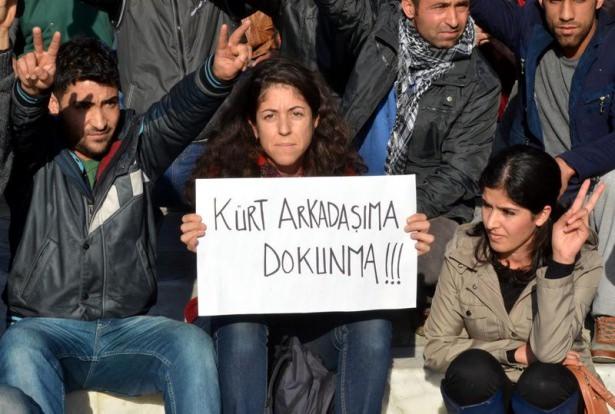 KÜRT ARKADAŞIMA
DOKUNMA!!!